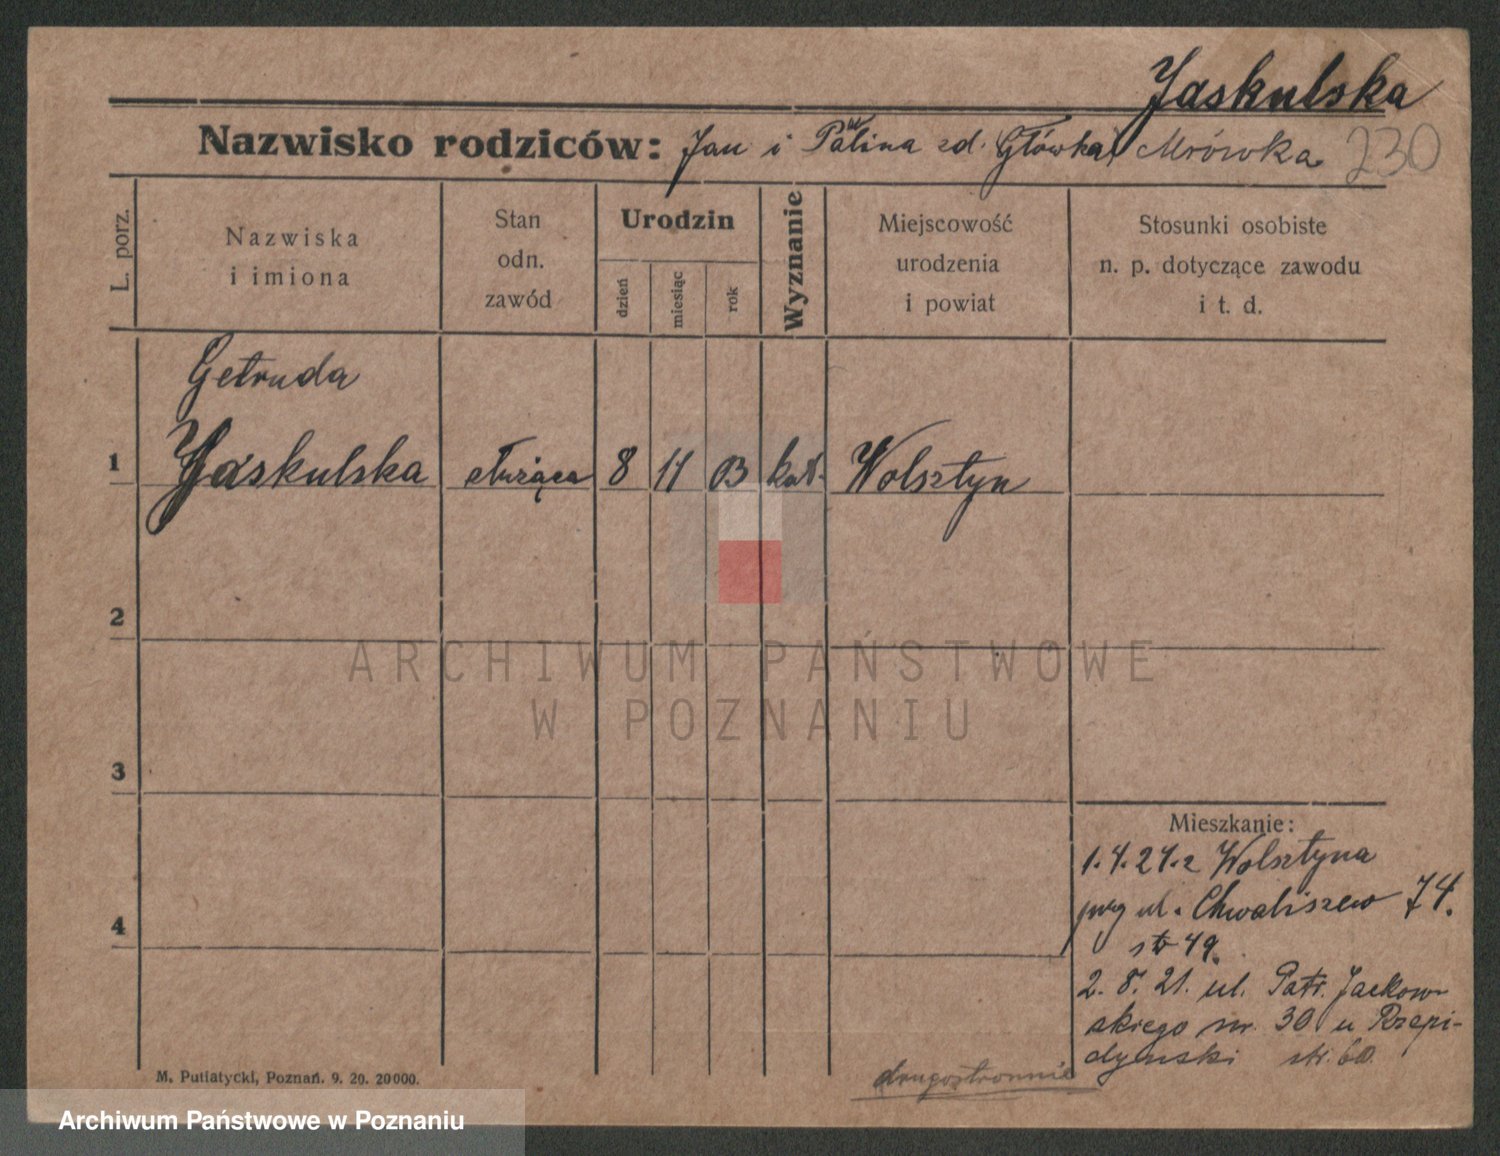 Jaskulska
Nazwisko rodziców: Jan i Paulina zd. (Główka) Mrówka 230
L. porz.
Nazwiska
i imiona
Stan
odn.
zawód
Urodzin
dzień
miesiąc
rok
Wyznanie
Miejscowość
urodzenia
i powiat
Stosunki osobiste
n. p. dotyczące zawodu
i t. d.
Getruda
1 Jaskulska służąca 8 11 03 kat. Wolsztyn
2
ARCHIWUM PAŃSTWOWE
W POZNANIU
3
Mieszkanie:
1.4.21. z Wolsztyna
przy ul. Chwaliszewo 74.
4
str 49.
2. 8. 21. ul. Patr. Jackow-
skiego nr. 30 u Rzepi-
dymski str. 60.
drugostronnie
M. Putiatycki, Poznań. 9. 20. 20000.
Archiwum Państwowe w Poznaniu